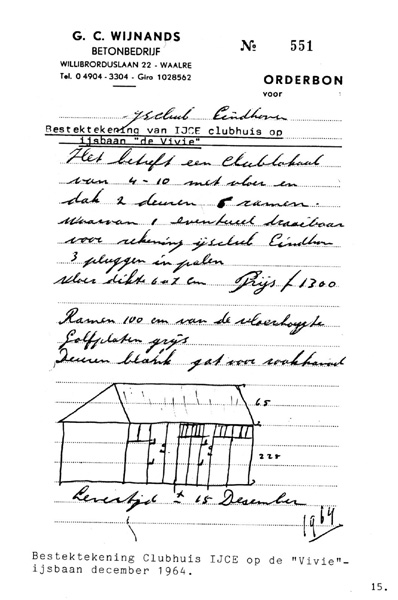 G. C. WIJNANDS
BETONBEDRIJF
WILLIBRORDUSLAAN 22 - WAALRE
Tel. 0 4904 - 3304 - Giro 1028562
№ 551
ORDERBON
voor
ijsclub Eindhoven
Bestektekening van IJCE clubhuis op
ijsbaan "de Vivie"
Het betreft een Clublokaal
van 4-10 met vloer en
dak 2 deuren 6 ramen.
waarvan 1 eventueel draaibaar
voor rekening ijsclub Eindhoven
3 pluggen in palen
vloer dikte 6 a 7 cm Prijs ƒ 1300
Ramen 100 cm van de vloerhoogte
Golfplaten grijs
Deuren blank gat voor
65
225
Levertijd ± 15 Desember
1964
Bestektekening Clubhuis IJCE op de "Vivie"-
ijsbaan december 1964.
15.